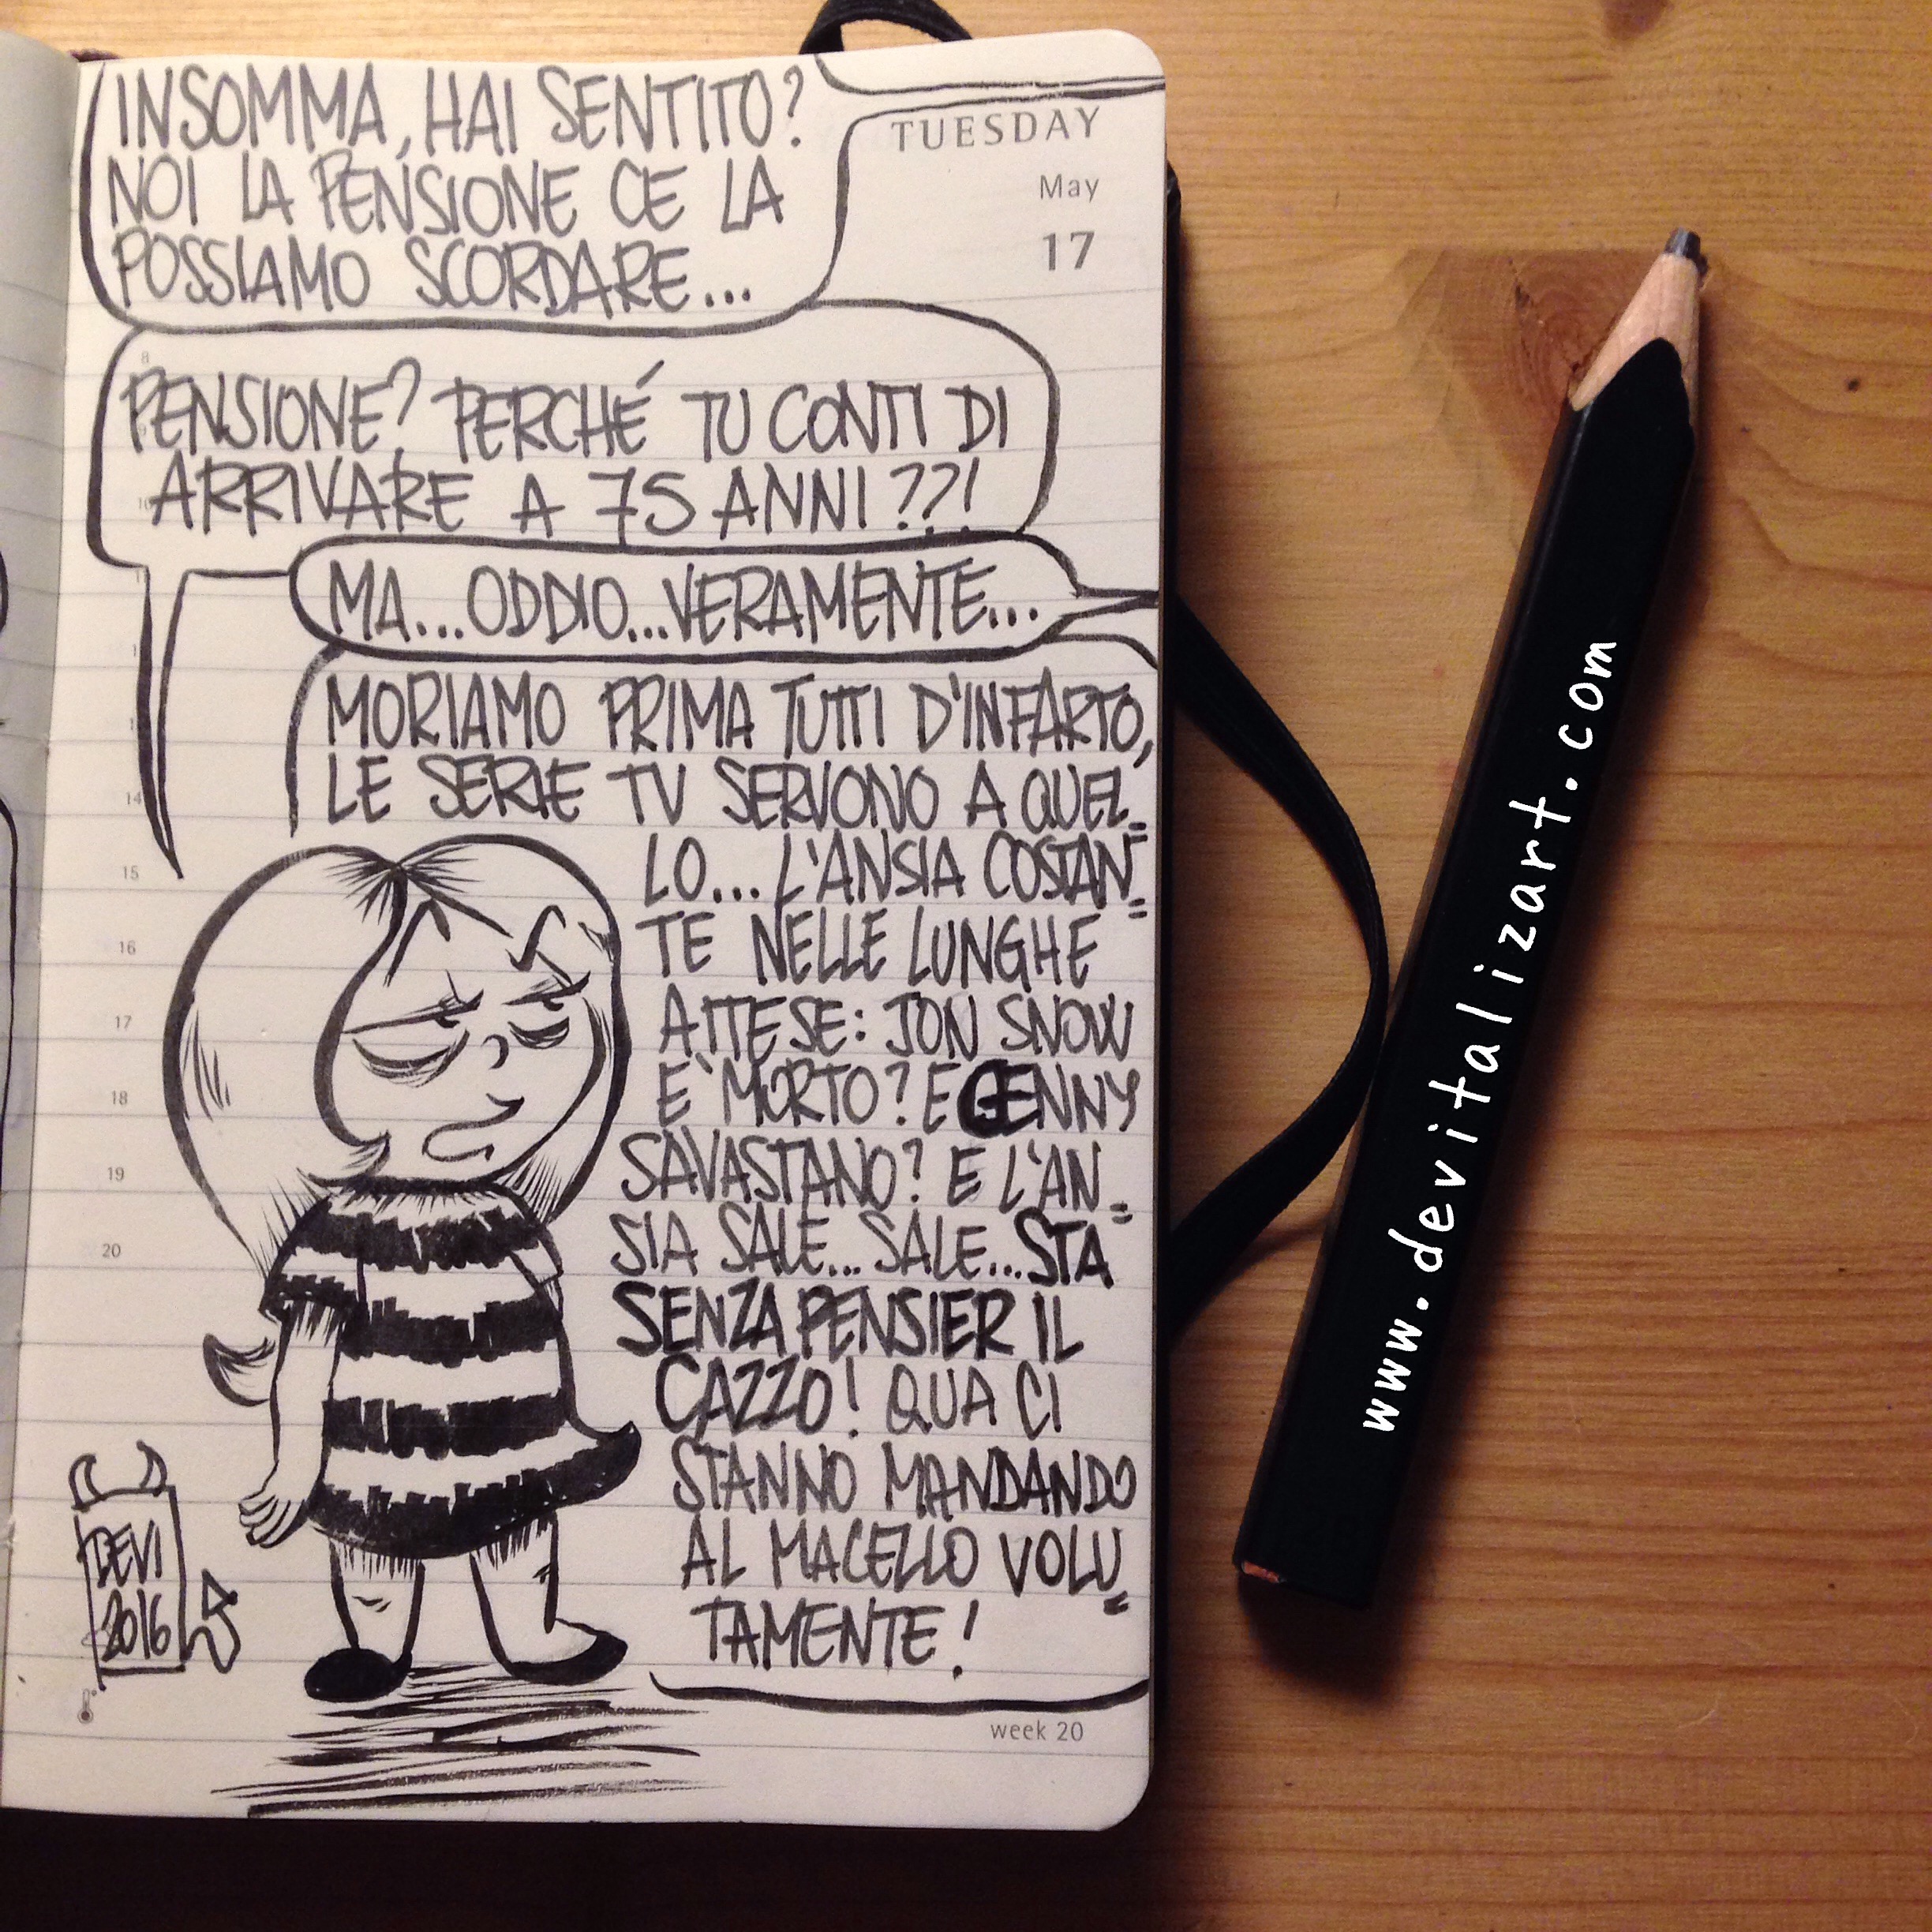 INSOMMA, HAI SENTITO?
NOI LA PENSIONE CE LA
POSSIAMO SCORDARE...
TUESDAY
May
17
PENSIONE? PERCHÉ TU CONTI DI
ARRIVARE A 75 ANNI??!
MA...ODDIO...VERAMENTE...
MORIAMO PRIMA TUTTI D'INFARTO,
LE SERIE TV SERVONO A QUEL=
LO... L'ANSIA COSTAN=
TE NELLE LUNGHE
ATTESE: JON SNOW
E' MORTO? E GENNY
SAVASTANO? E L'AN=
SIA SALE... SALE... STA
SENZA PENSIER IL
CAZZO! QUA CI
STANNO MANDANDO
AL MACELLO VOLU=
TAMENTE!
8
9
10
11
14
15
16
17
18
19
20
DEVI
2016
week 20
www.devitalizart.com